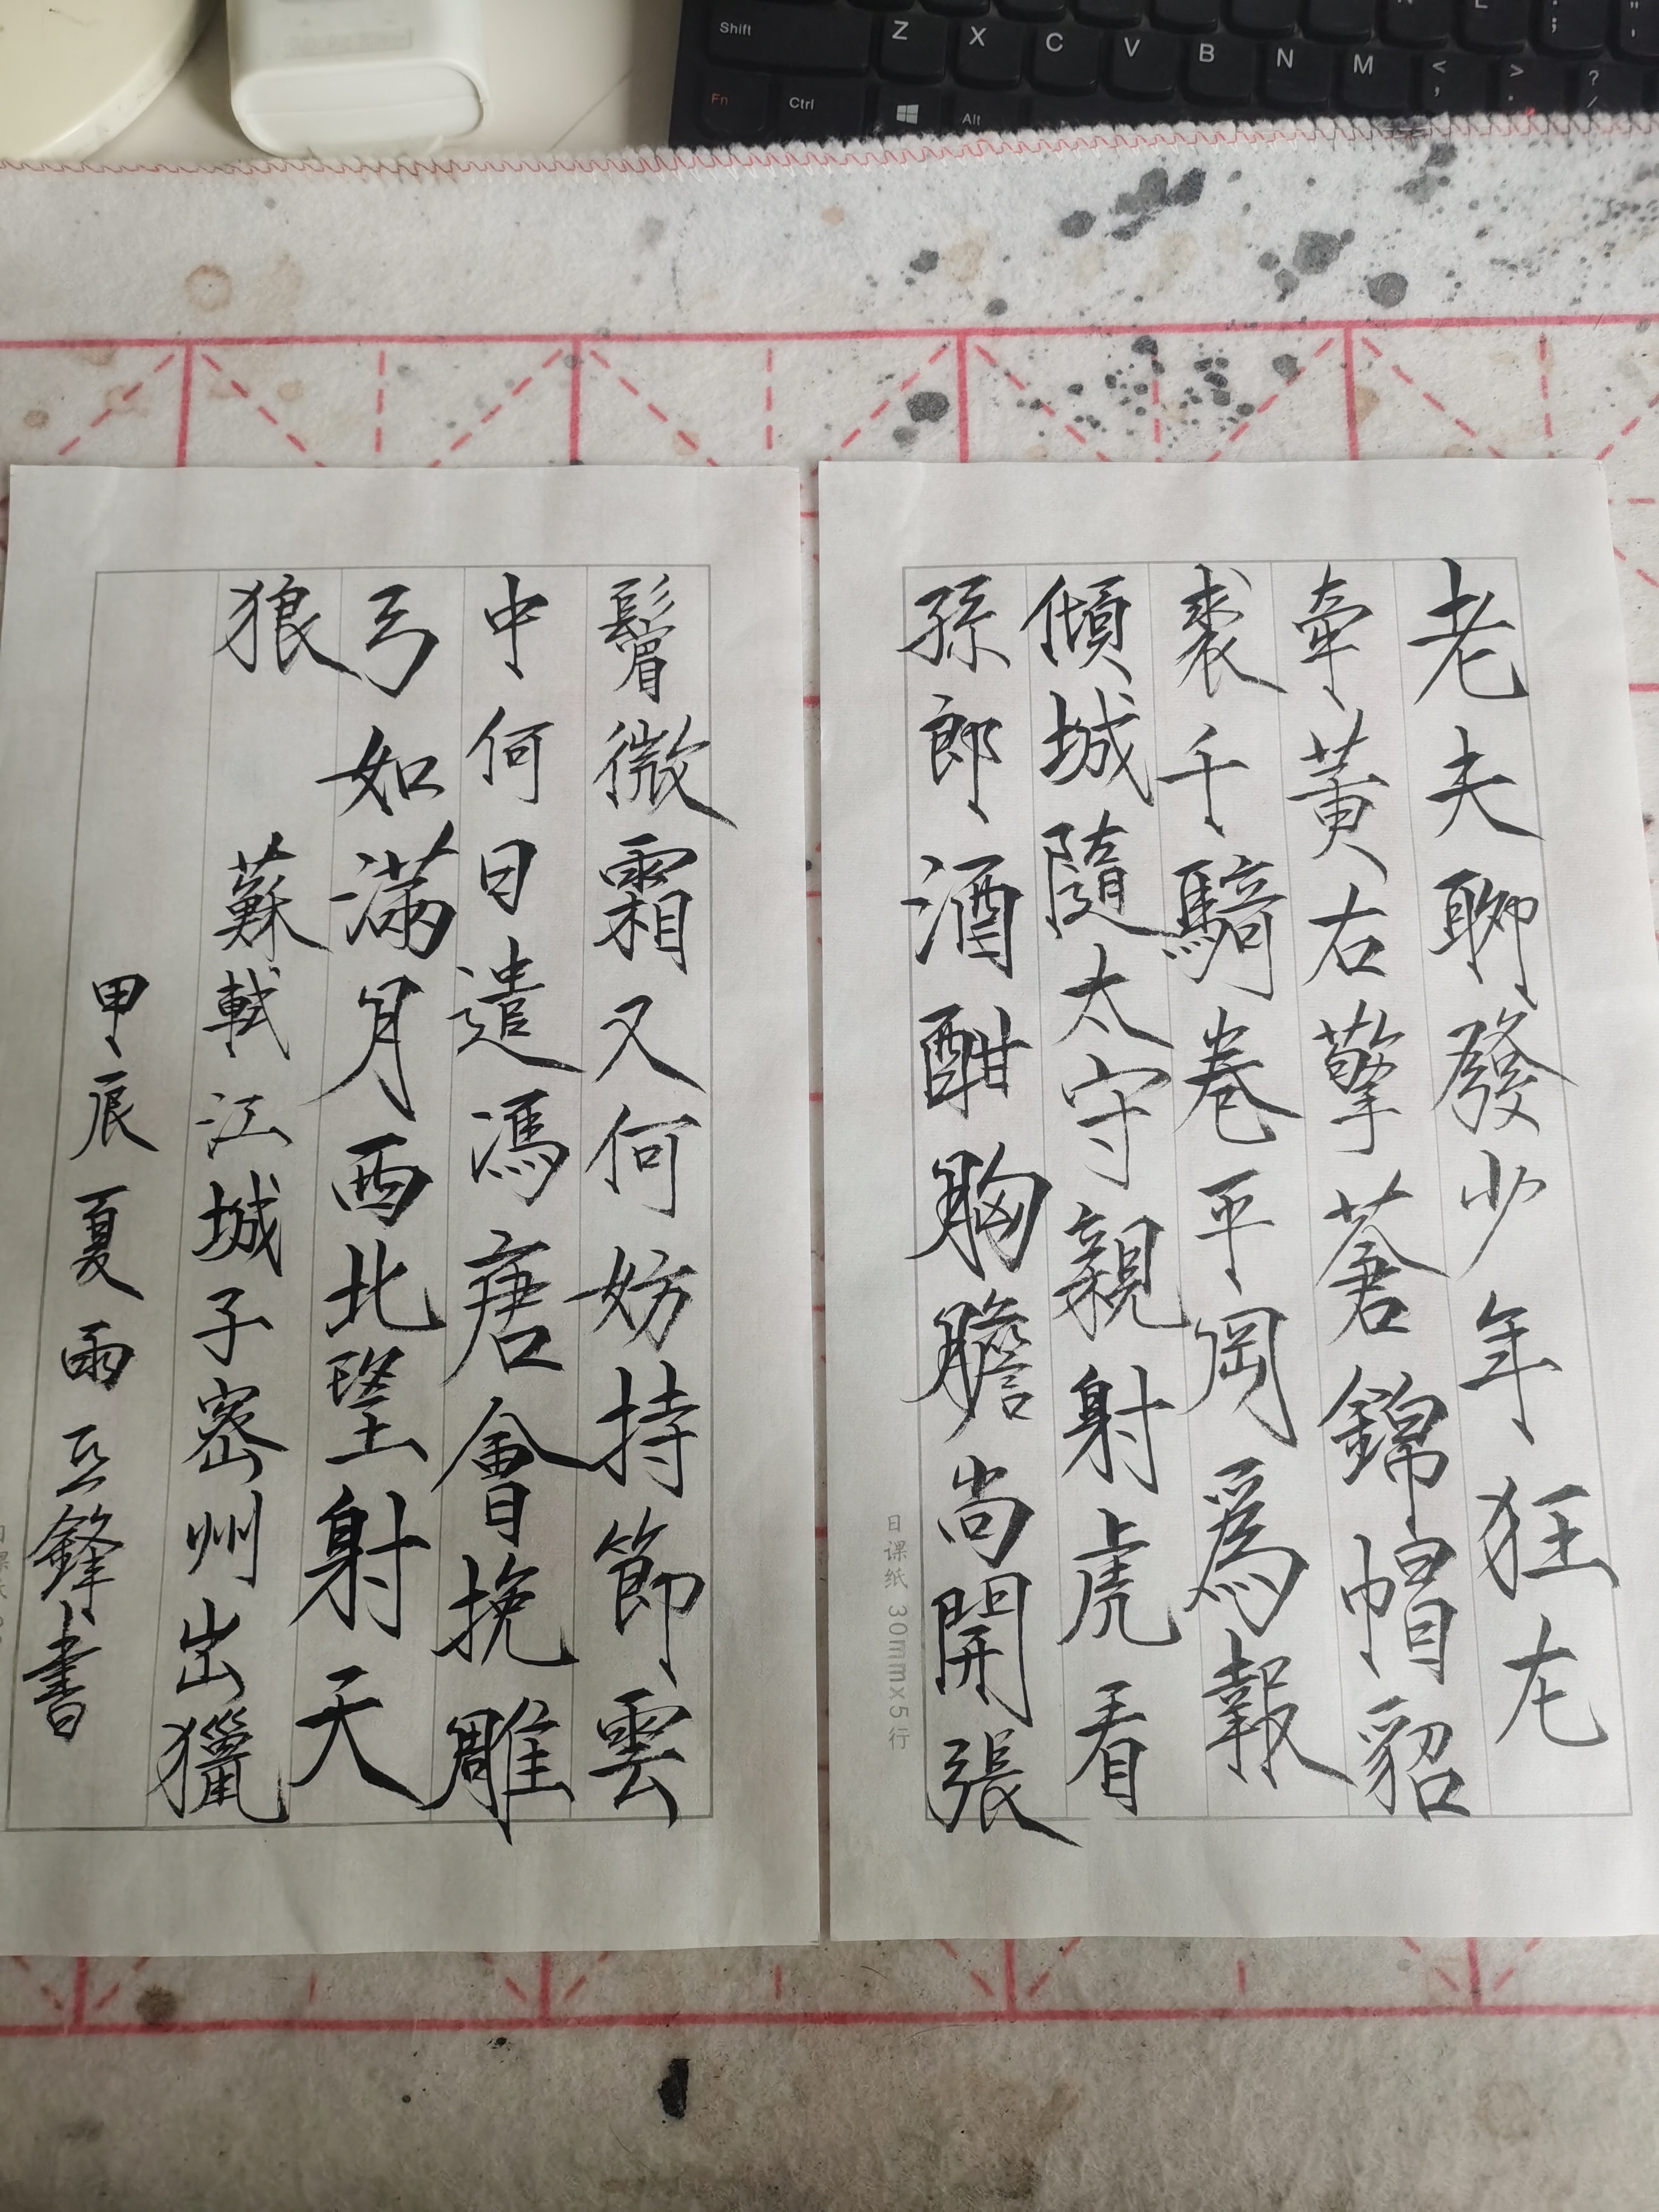 Shift Z X C V B N M < , > . ? /
Fn Ctrl Alt
老夫聊發少年狂左
牽黃右擎蒼錦帽貂
裘千騎卷平岡爲報
傾城隨太守親射虎看
孫郎酒酣胸膽尚開張
日课纸 30mmx5行
鬢微霜又何妨持節雲
中何日遣馮唐會挽雕
弓如滿月西北望射天
狼 蘇軾江城子密州出獵
甲辰夏雨鋒書